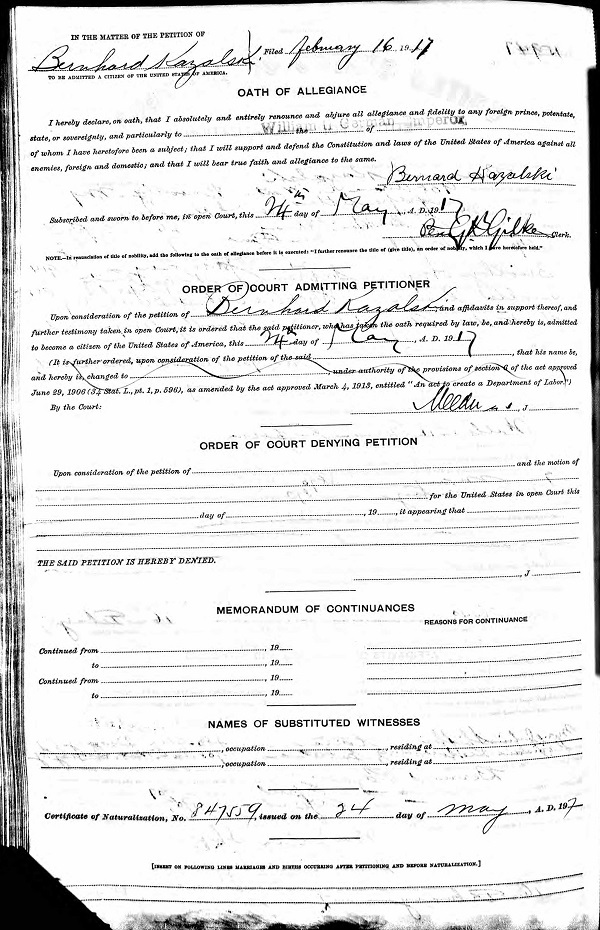 IN THE MATTER OF THE PETITION OF
Bernhard Kazalski. Filed february 16 1917
TO BE ADMITTED A CITIZEN OF THE UNITED STATES OF AMERICA.
OATH OF ALLEGIANCE
I hereby declare, on oath, that I absolutely and entirely renounce and abjure all allegiance and fidelity to any foreign prince, potentate,
state, or sovereignty, and particularly to William II German Emperor, the of
of whom I have heretofore been a subject; that I will support and defend the Constitution and laws of the United States of America against all
enemies, foreign and domestic; and that I will bear true faith and allegiance to the same.
Bernard Kazalski
Subscribed and sworn to before me, in open Court, this 24th day of May, A. D. 1917
Clerk.
NOTE.—In renunciation of title of nobility, add the following to the oath of allegiance before it is executed: "I further renounce the title of (give title), an order of nobility, which I have heretofore held."
ORDER OF COURT ADMITTING PETITIONER
Upon consideration of the petition of Bernhard Kazalski and affidavits in support thereof, and
further testimony taken in open Court, it is ordered that the said petitioner, who has taken the oath required by law, be, and hereby is, admitted
to become a citizen of the United States of America, this 24th day of May, A. D. 1917
(It is further ordered, upon consideration of the petition of the said, that his name be,
and hereby is, changed to, under authority of the provisions of section 6 of the act approved
June 29, 1906 (34 Stat. L., pt. 1, p. 596), as amended by the act approved March 4, 1913, entitled "An act to create a Department of Labor.")
By the Court: J
ORDER OF COURT DENYING PETITION
Upon consideration of the petition of and the motion of
for the United States in open Court this
day of, 19, it appearing that
THE SAID PETITION IS HEREBY DENIED.
, J
MEMORANDUM OF CONTINUANCES
REASONS FOR CONTINUANCE
Continued from, 19
to, 19
Continued from, 19
to, 19
NAMES OF SUBSTITUTED WITNESSES
, occupation, residing at
, occupation, residing at
Certificate of Naturalization, No. 847559, issued on the 24 day of may, A. D. 1917
[INSERT ON FOLLOWING LINES MARRIAGES AND BIRTHS OCCURING AFTER PETITIONING AND BEFORE NATURALIZATION.]